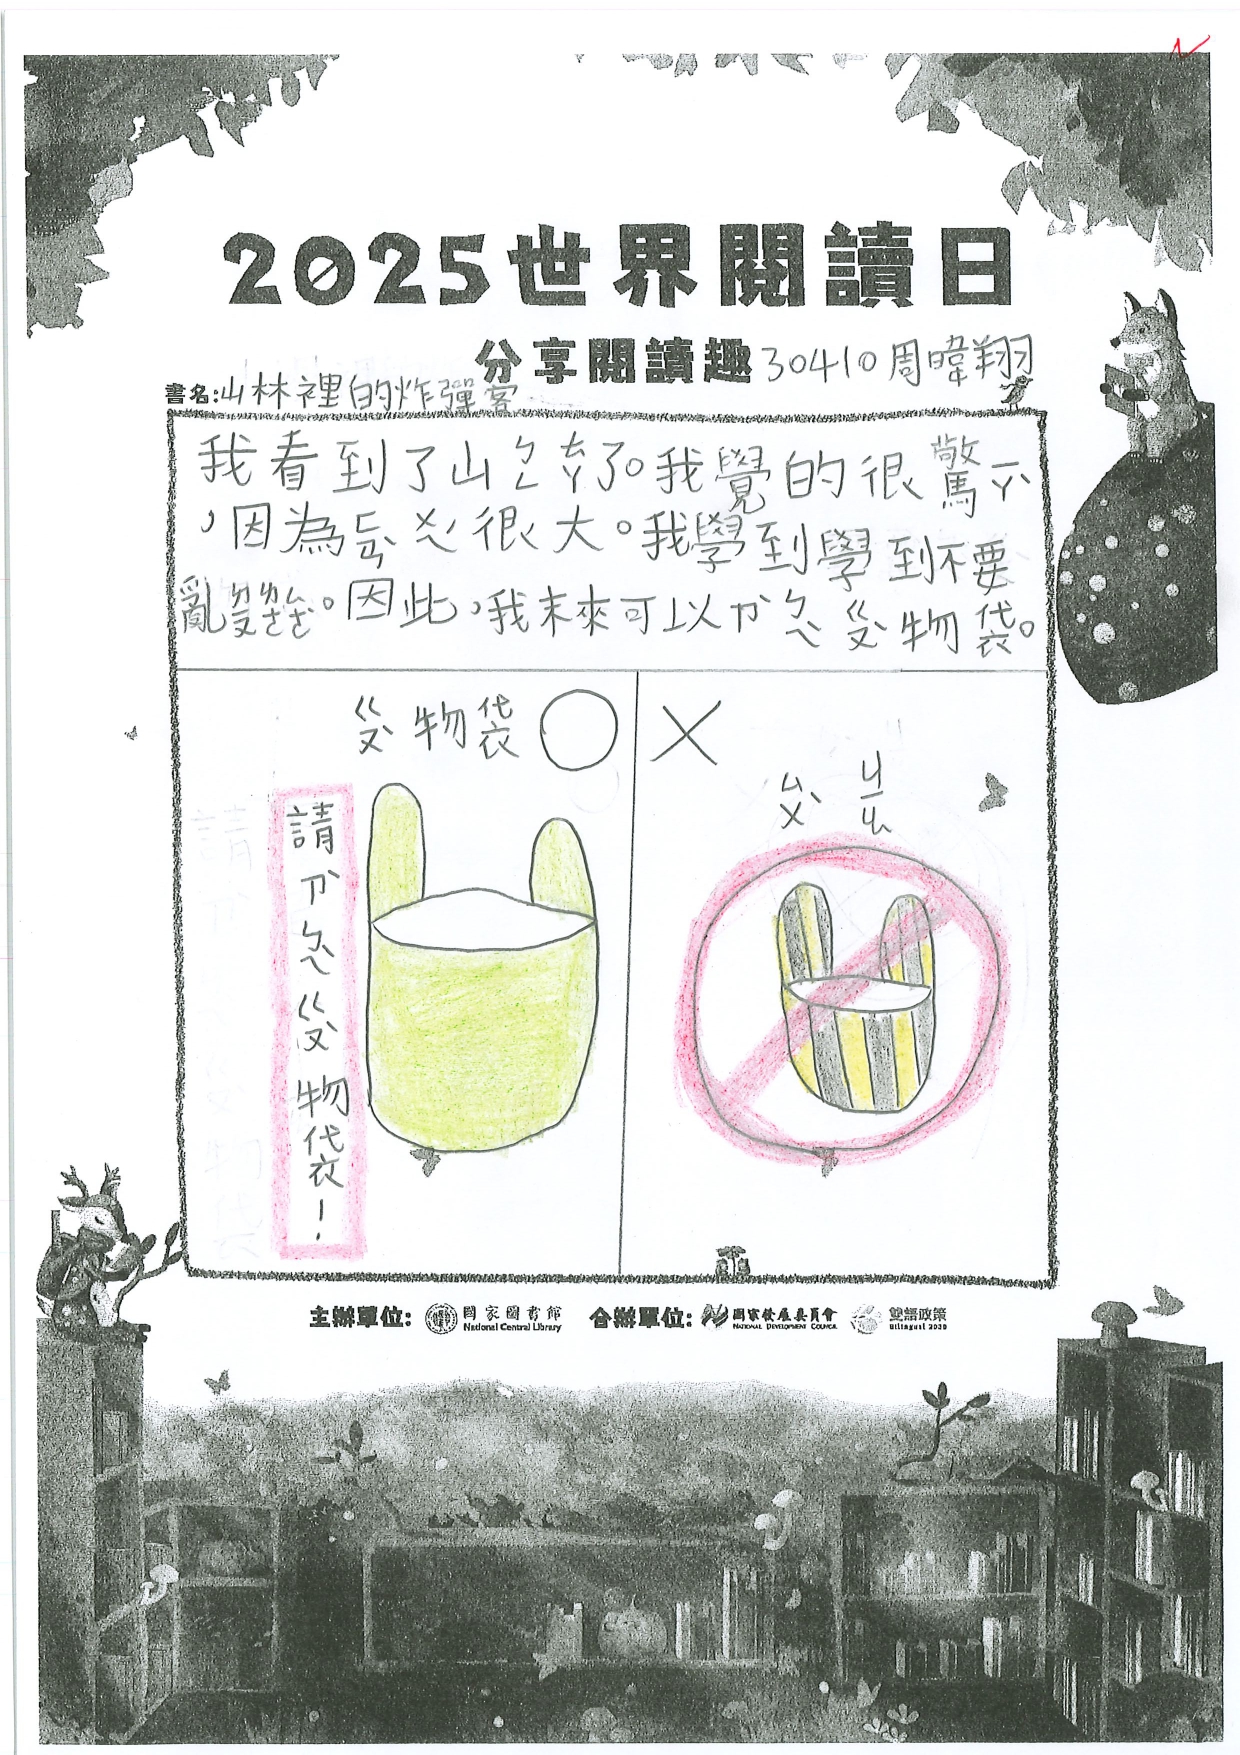 2025世界閱讀日
分享閱讀趣 30410 周暐翔
書名:山林裡的炸彈客
我看到了山ㄅㄥ ㄘㄞˇ了。我覺的很驚ㄒㄚˋ
,因為ㄊㄞˊ ㄨㄟ 很大。我學到學到不要
亂ㄉㄡ ㄌㄜˋㄙㄜˋ。因此,我未來可以ㄉㄞˋ ㄍㄡˋ物袋。
ㄍㄡˋ物袋 ○
×
ㄙㄨˋ ㄐㄧㄠ
請ㄉㄞˋㄍㄡˋ物袋!
主辦單位: 國家圖書館 合辦單位: 國家發展委員會 雙語政策
National Central Library NATIONAL DEVELOPMENT COUNCIL Bilingual 2030